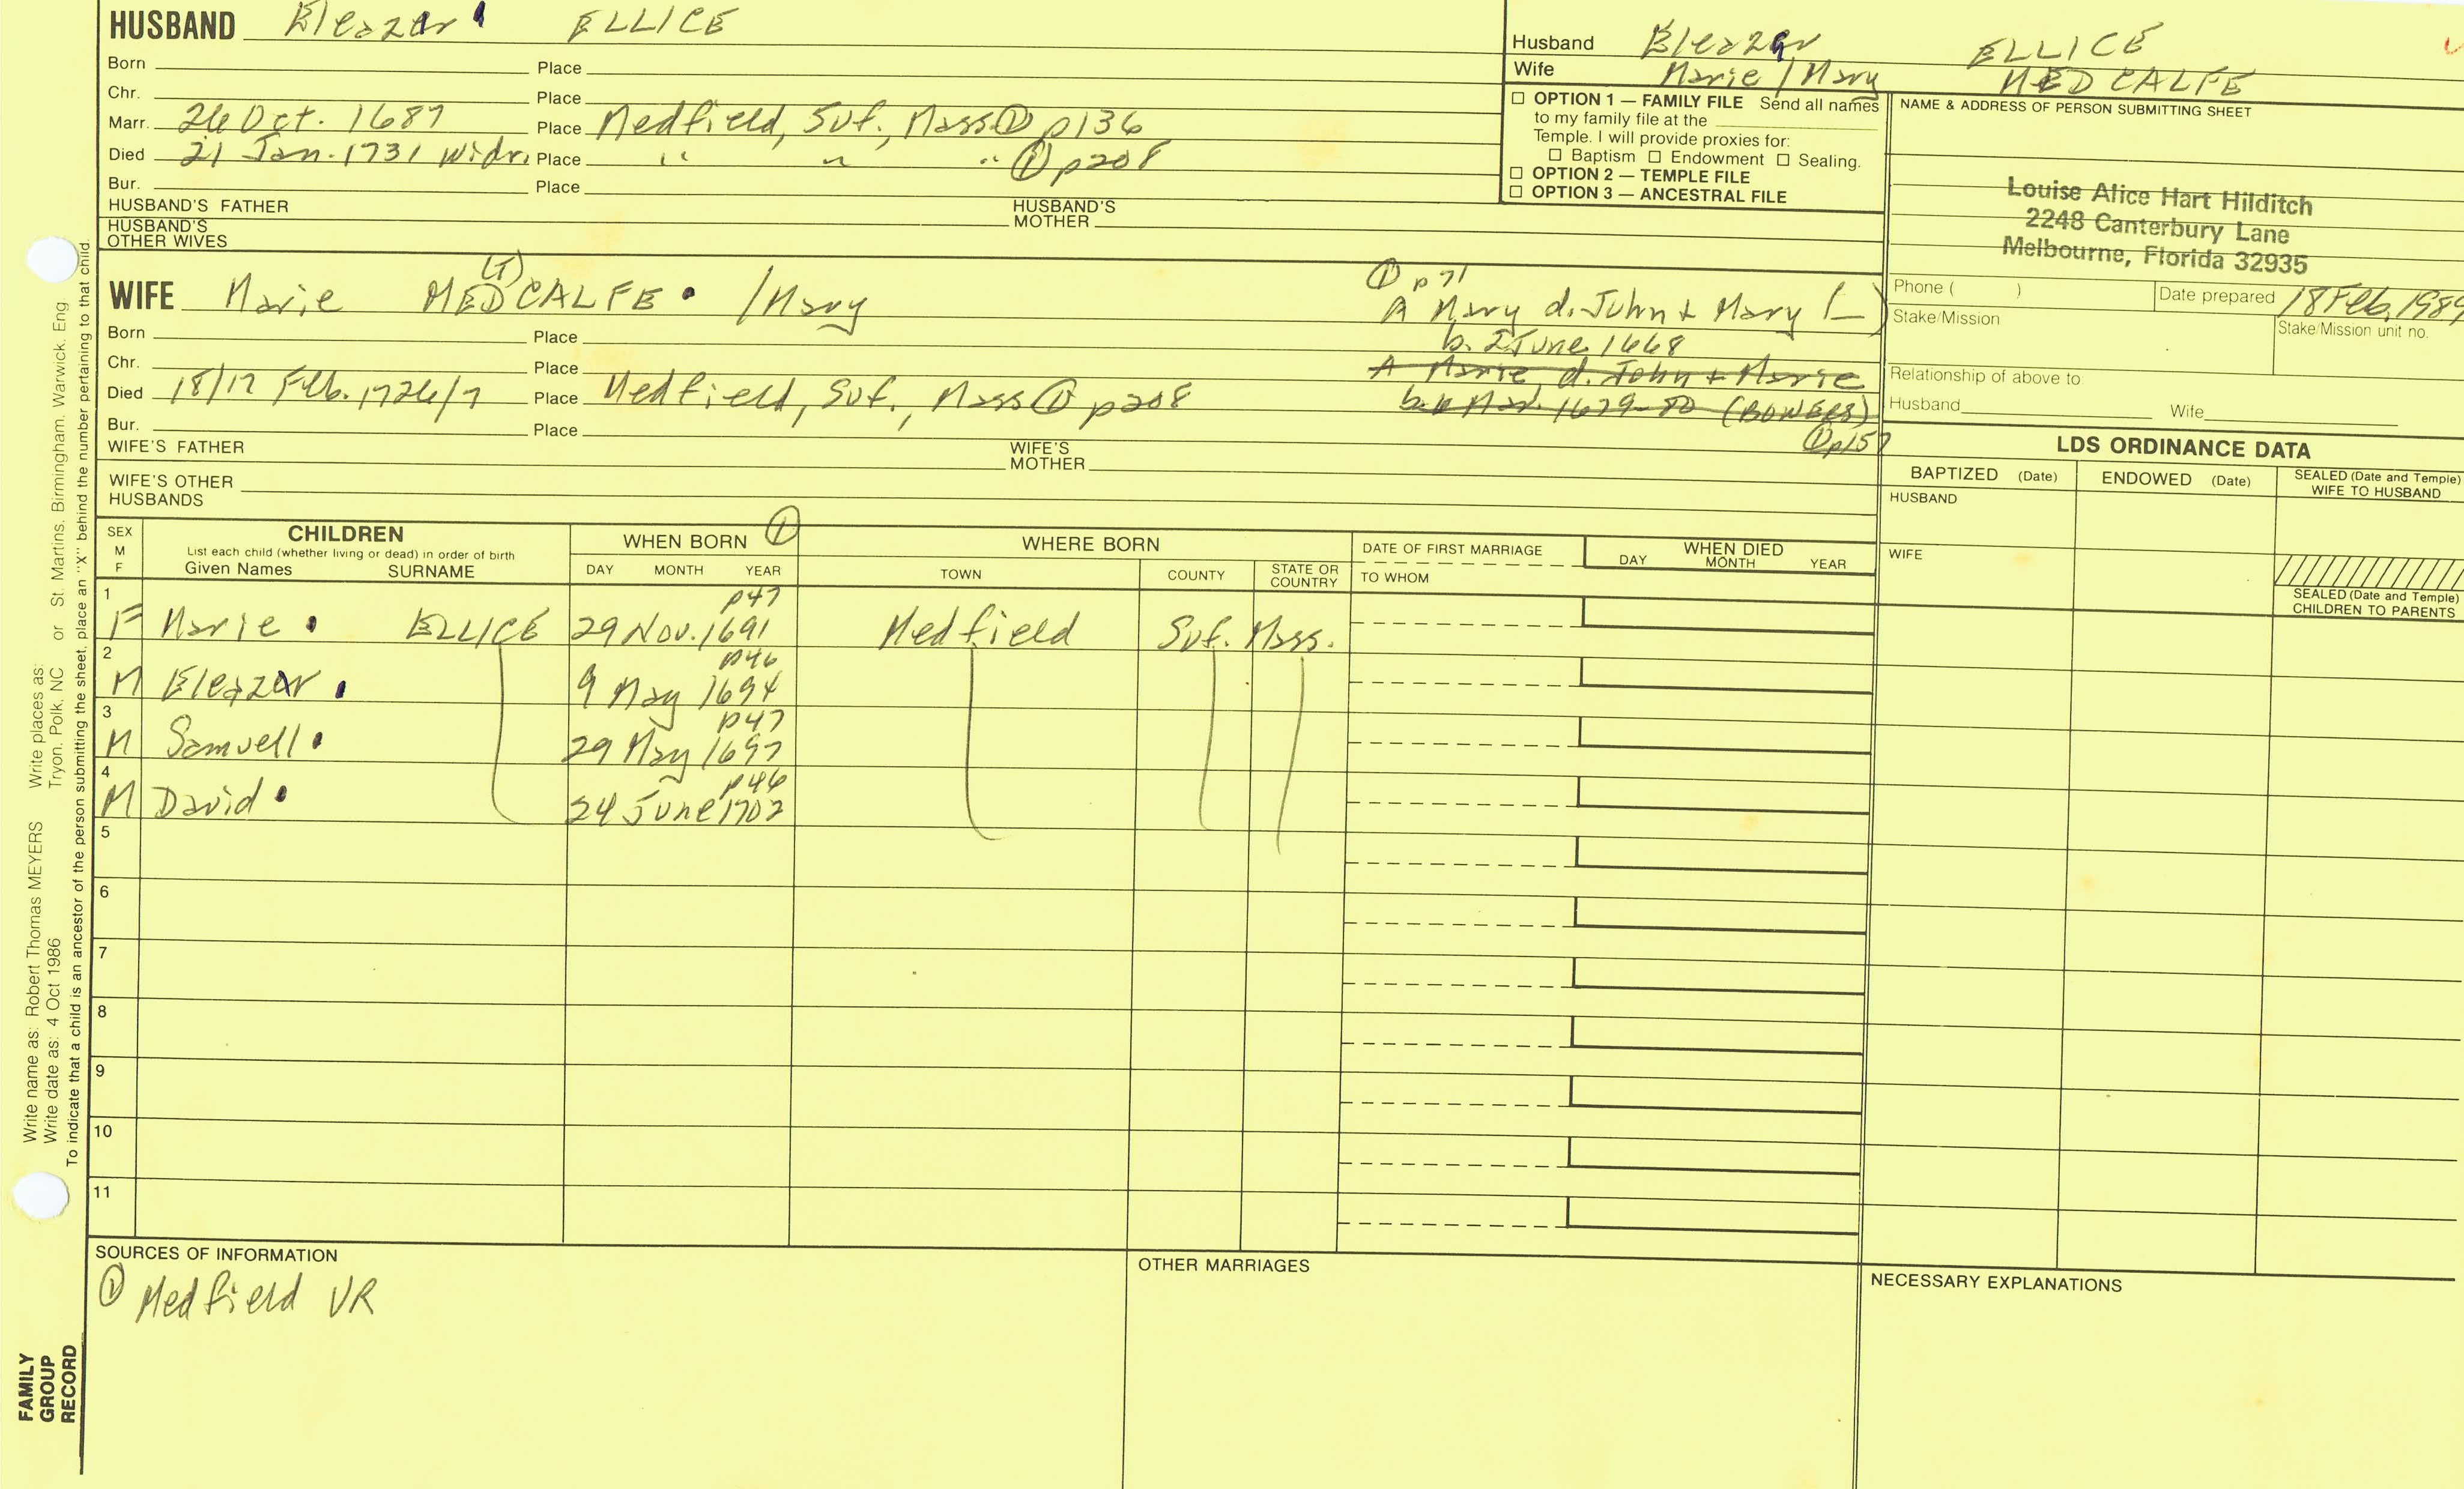 HUSBAND Eleazer ELLICE
Born Place
Chr. Place
Marr. 26 Oct. 1687 Place Medfield, Suf., Mass ① p136
Died 21 Jan. 1731 widr. Place " " " ① p208
Bur. Place
HUSBAND'S FATHER HUSBAND'S MOTHER
HUSBAND'S OTHER WIVES
Husband Eleazer ELLICE
Wife Marie / Mary MEDCALFE
☐ OPTION 1 — FAMILY FILE Send all names
to my family file at the
Temple. I will provide proxies for:
☐ Baptism ☐ Endowment ☐ Sealing.
☐ OPTION 2 — TEMPLE FILE
☐ OPTION 3 — ANCESTRAL FILE
NAME & ADDRESS OF PERSON SUBMITTING SHEET
Louise Alice Hart Hilditch
2248 Canterbury Lane
Melbourne, Florida 32935
Phone ( ) Date prepared 18 Feb. 1989
Stake/Mission Stake/Mission unit no.
Relationship of above to
Husband Wife
(T)
WIFE Marie MEDCALFE /Mary
Born Place
Chr. Place
Died 18/17 Feb. 1726/7 Place Medfield, Suf., Mass ① p208
Bur. Place
WIFE'S FATHER WIFE'S MOTHER
WIFE'S OTHER HUSBANDS
① p71
A Mary d. John + Mary (—)
b. 2 June 1668
A Marie, d. John + Marie
b. Mar. 1679-80 (BOWERS)
① p157
LDS ORDINANCE DATA
BAPTIZED (Date) ENDOWED (Date) SEALED (Date and Temple) WIFE TO HUSBAND
HUSBAND
WIFE
SEALED (Date and Temple) CHILDREN TO PARENTS
SEX M F
CHILDREN
List each child (whether living or dead) in order of birth
Given Names SURNAME
WHEN BORN ①
DAY MONTH YEAR
WHERE BORN
TOWN COUNTY STATE OR COUNTRY
DATE OF FIRST MARRIAGE
TO WHOM
WHEN DIED
DAY MONTH YEAR
1 p47
F Marie ELLICE 29 Nov. 1691 Medfield Suf. Mass.
2 p46
M Eleazar 9 May 1694
3 p47
M Samuell 29 May 1697
4 p46
M David 24 June 1702
5
6
7
8
9
10
11
SOURCES OF INFORMATION
① Medfield VR
OTHER MARRIAGES
NECESSARY EXPLANATIONS
Write name as: Robert Thomas MEYERS Write places as:
Write date as: 4 Oct 1986 Tryon, Polk, NC or St. Martins, Birmingham, Warwick, Eng
To indicate that a child is an ancestor of the person submitting the sheet, place an "X" behind the number pertaining to that child.
FAMILY
GROUP
RECORD